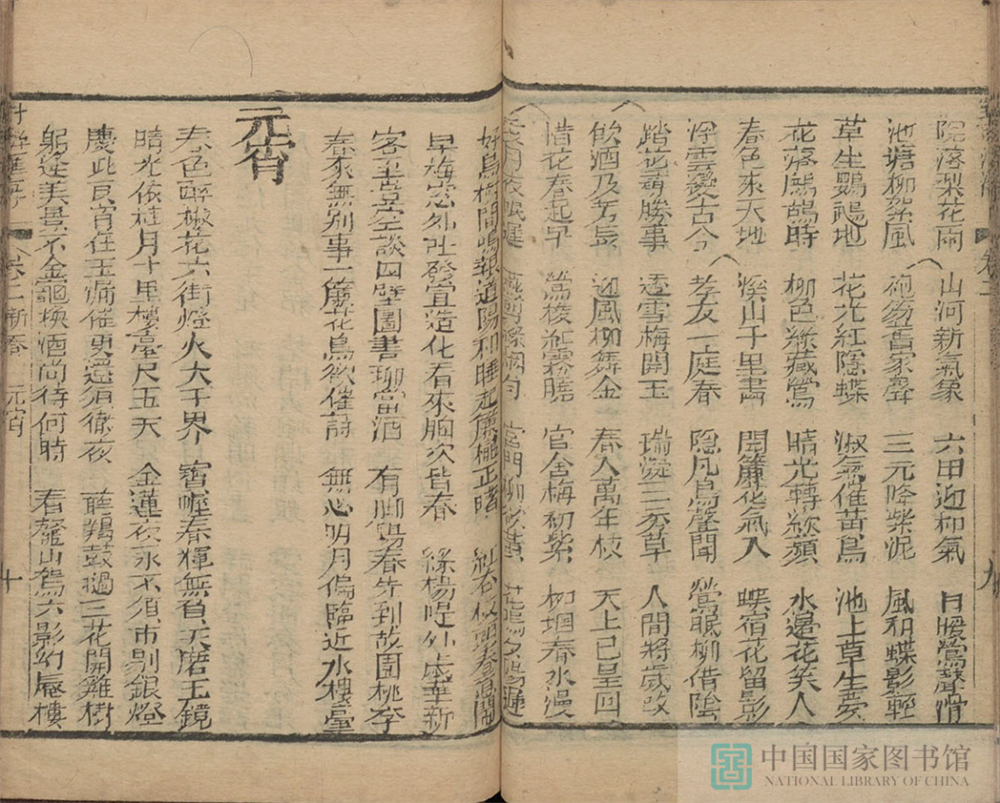 院落梨花雨 山河新氣象 六田迎和氣 日暖鶯聲滑
池塘柳絮風 舊家聲 三元降紫泥 風和蝶影輕
草生鸚鵡地 花光紅隱蝶 淑氣催黃鳥 池上草生夢
花落鷓鴣時 柳色綠藏鶯 晴光轉綠蘋 水邊花笑人
春色來天地 溪山千里畫 開簾花氣入 蝶宿花留影
浮雲變古今 孝友一庭春 隱几鳥聲聞 鶯眠柳借陰
踏花尋勝事 透雪梅開玉 瑞凝三示草 人間將歲改
飲酒及芳辰 迎風柳舞金 春入萬年枝 天上已星回
惜花春起早 鶯梭紅霧曉 官舍梅初紫 柳堌春水漫
愛月夜眠遲 燕剪綠烟勻 宮門柳欲黃 花塢夕陽遲
好鳥枝間鳴報道陽和 睡起簾櫳正曙 紅杏枝頭春意鬧
早梅窓外吐發宣造化 看來胸次皆春 綠楊堤外歲華新
客至莫空談四壁圖書聊當酒 有脚陽春先到故園桃李
春來無別事一簾花鳥欲催詩 無心明月偏臨近水樓臺
元宵
春色醉椒花六街燈火大千界 寶幄春輝無負天磨玉鏡
晴光依桂月十里樓臺尺五天 金蓮夜永不須市剔銀燈
慶此良宵任玉漏催更還須徹夜 聽羯鼓撾三花開雞樹
躬逢美景不金龜換酒尚待何時 看鰲山駕六影幻蜃樓
卷二 新春 元宵 十